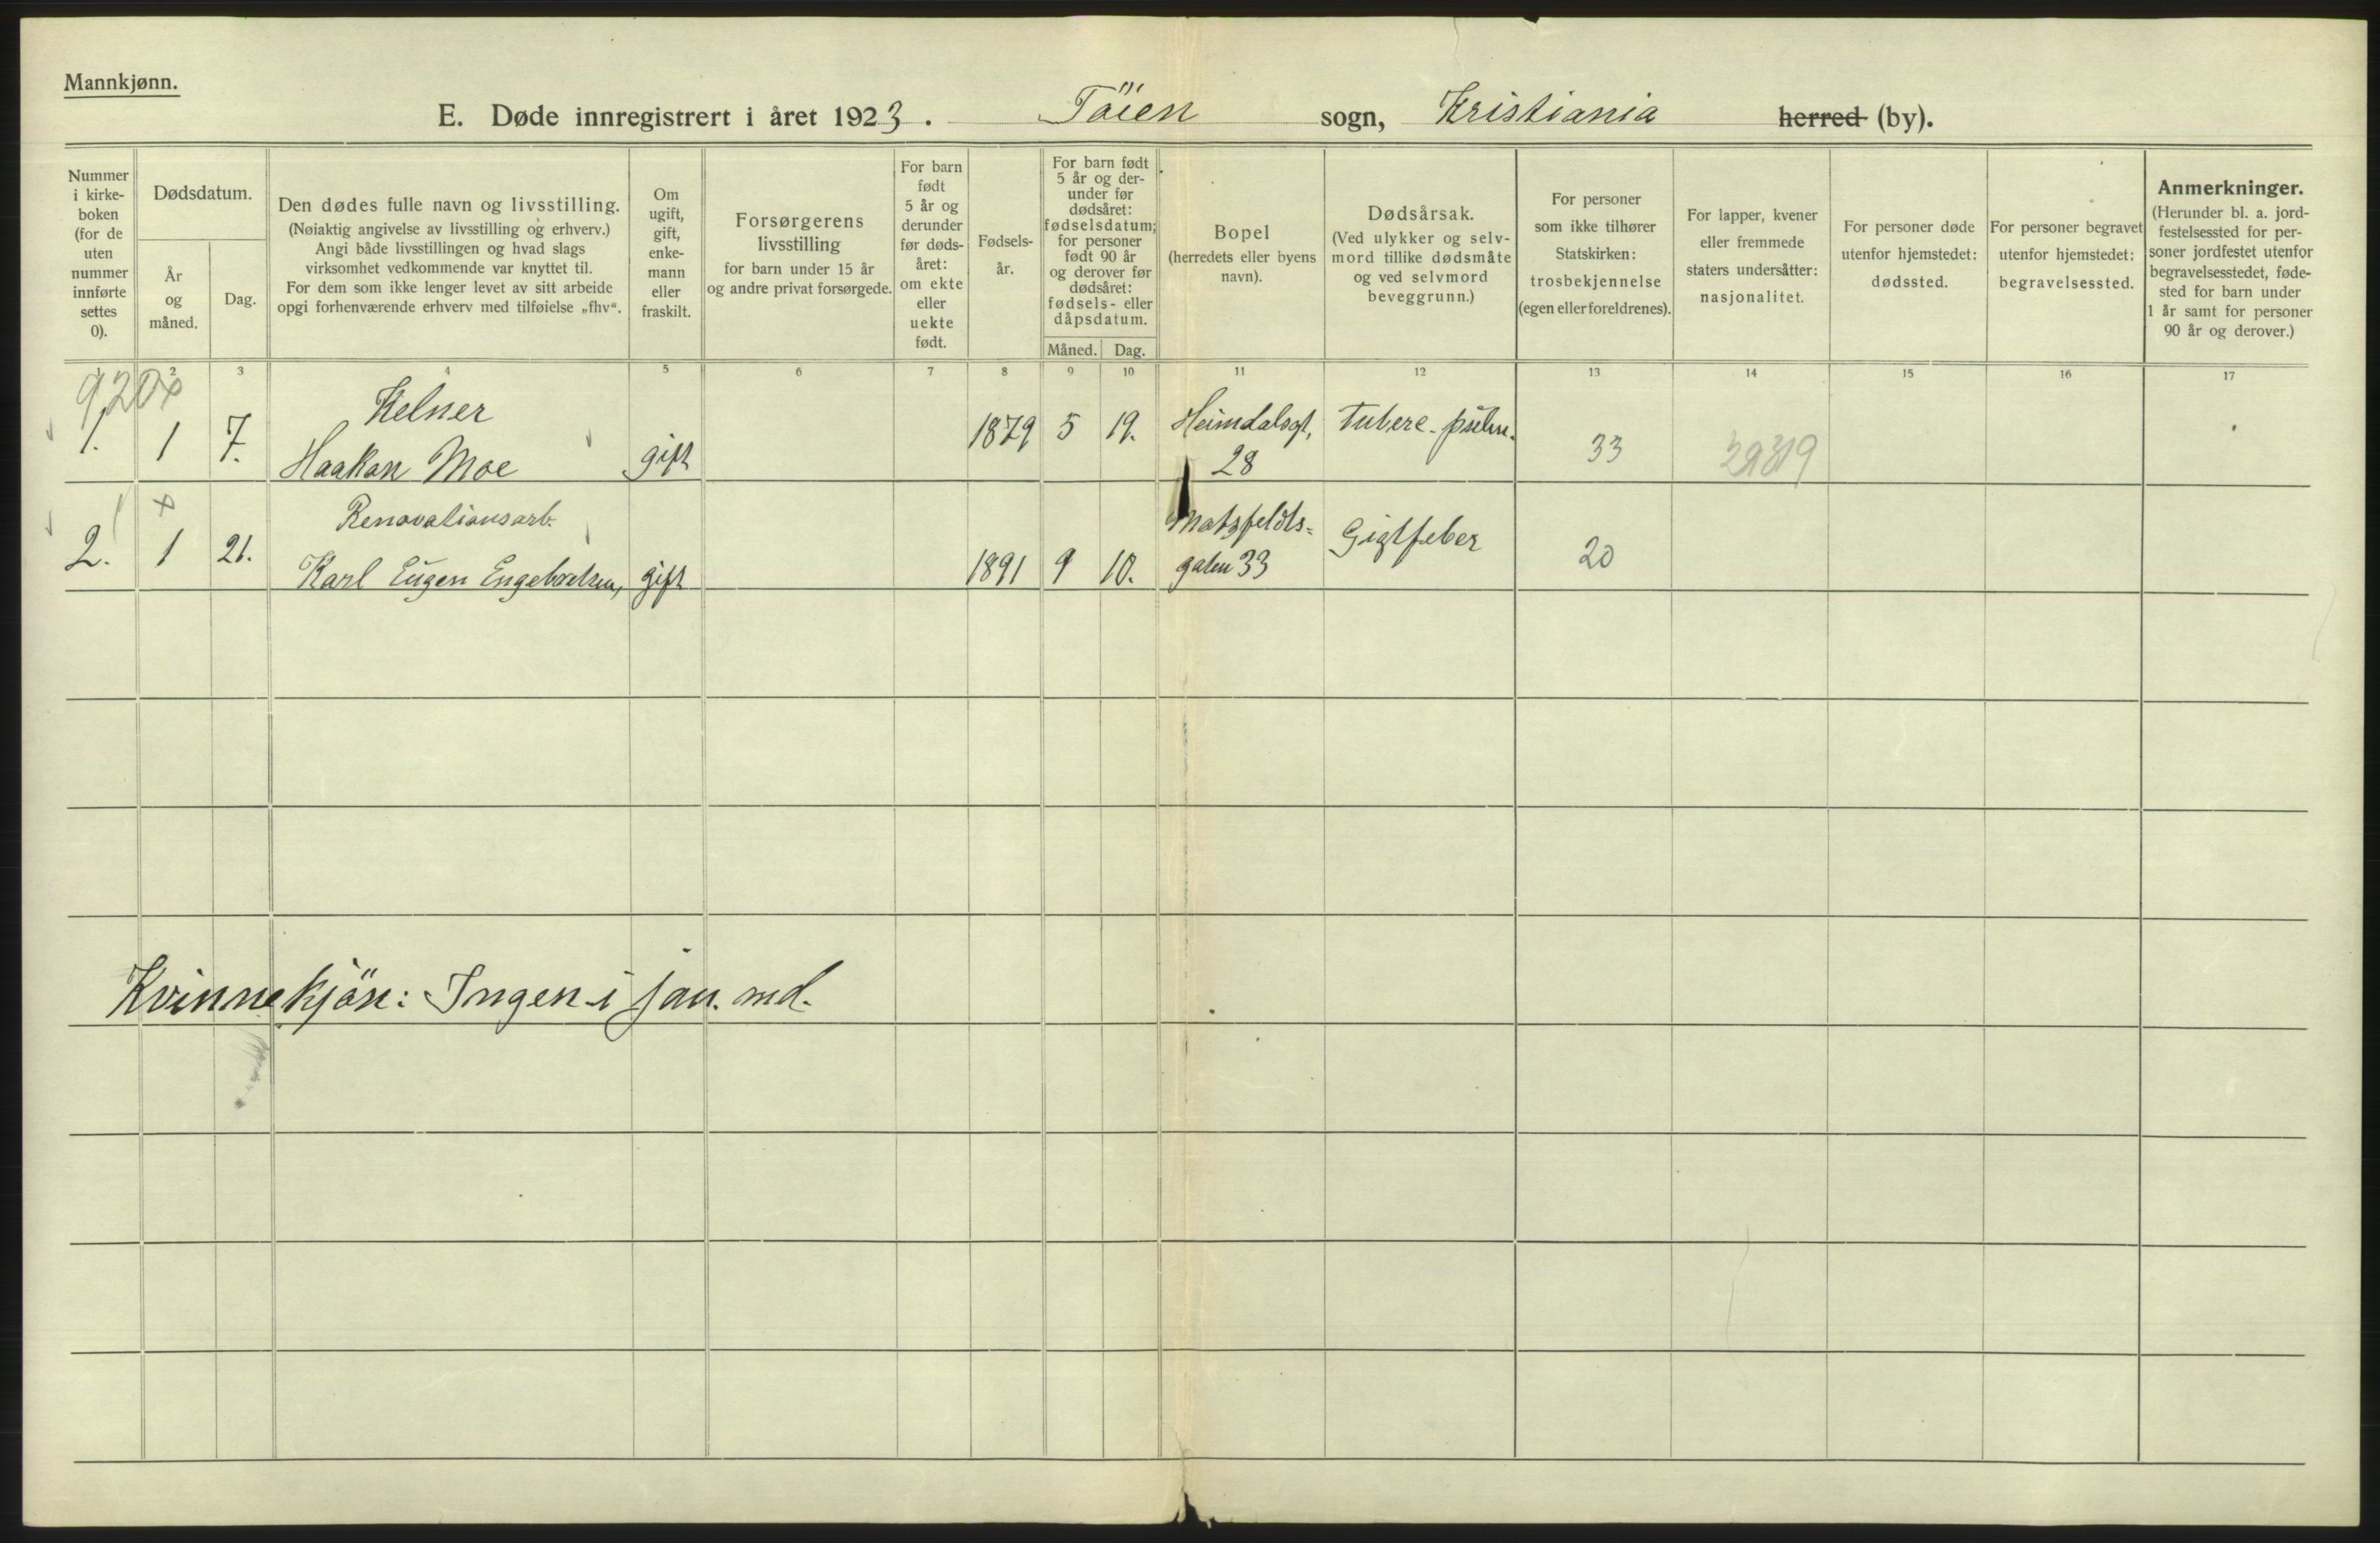 Mannkjønn.
E. Døde innregistrert i året 1923. Töien sogn, Kristiania herred (by).
Nummer
i kirke-
boken
(for de
uten
nummer
innførte
settes
0).
Dødsdatum.
År
og
måned.
Dag.
Den dødes fulle navn og livsstilling.
(Nøiaktig angivelse av livsstilling og erhverv.)
Angi både livsstillingen og hvad slags
virksomhet vedkommende var knyttet til.
For dem som ikke lenger levet av sitt arbeide
opgi forhenværende erhverv med tilføielse „fhv“.
Om
ugift,
gift,
enke-
mann
eller
fraskilt.
Forsørgerens
livsstilling
for barn under 15 år
og andre privat forsørgede.
For barn
født
5 år og
derunder
før døds-
året:
om ekte
eller
uekte
født.
Fødsels-
år.
For barn født
5 år og der-
under før
dødsåret:
fødselsdatum;
for personer
født 90 år
og derover før
dødsåret:
fødsels- eller
dåpsdatum.
Måned. Dag.
Bopel
(herredets eller byens
navn).
Dødsårsak.
(Ved ulykker og selv-
mord tillike dødsmåte
og ved selvmord
beveggrunn.)
For personer
som ikke tilhører
Statskirken:
trosbekjennelse
(egen eller foreldrenes).
For lapper, kvener
eller fremmede
staters undersåtter:
nasjonalitet.
For personer døde
utenfor hjemstedet:
dødssted.
For personer begravet
utenfor hjemstedet:
begravelsessted.
Anmerkninger.
(Herunder bl. a. jord-
festelsessted for per-
soner jordfestet utenfor
begravelsesstedet, føde-
sted for barn under
1 år samt for personer
90 år og derover.)
1 2 3 4 5 6 7 8 9 10 11 12 13 14 15 16 17
920x
Kelner
1. 1 7. Haakon Moe gift 1879 5 19. Heimdalsgt, 28 Tuberc. pulm. 33
x
Renovationsarb.
2. 1 21. Karl Eugen Engebretsen, gift 1891 9 10. Motzfeldts= gaten 33 Gigtfeber 20
Kvinnekjön: Ingen i jan. md.